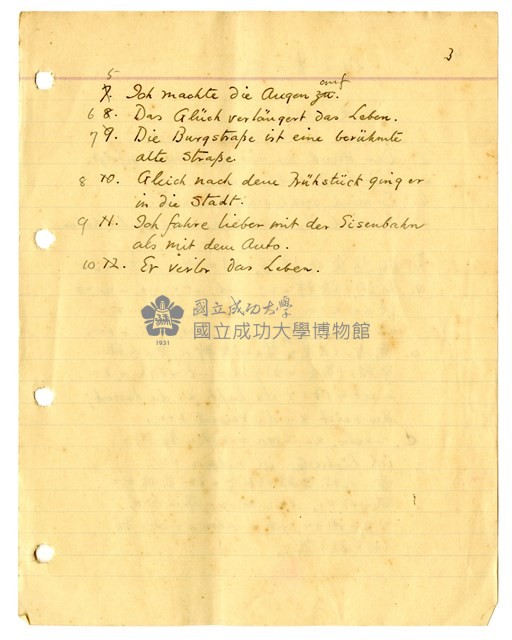 3
5
7. Ich machte die Augen zu. auf
6 8. Das Glück verlängert das Leben.
7 9. Die Burgstraße ist eine berühmte
alte Straße.
8 10. Gleich nach dem Frühstück ging er
in die Stadt.
9 11. Ich fahre lieber mit der Eisenbahn
als mit dem Auto.
10 12. Er verlor das Leben.
國立成功大學
國立成功大學博物館
1931